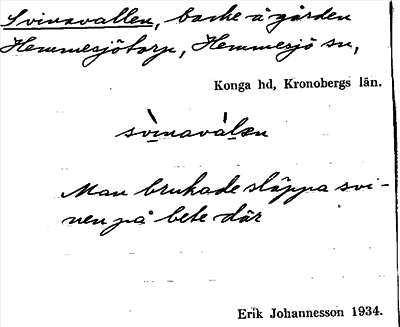 Svinavallen, backe å gården
Hemmesjötorp, Hemmesjö sn,
Konga hd, Kronobergs län.
svìnavàlən
Man brukade släppa svi-
nen på bete där
Erik Johannesson 1934.